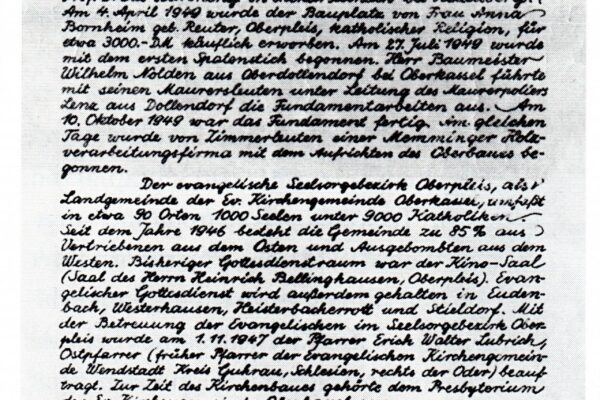 Am 4. April 1949 wurde der Bauplatz von Frau Anna
Bornheim geb. Reuter, Oberpleis, katholischer Religion, für
etwa 3000.-DM käuflich erworben. Am 27. Juli 1949 wurde
mit dem ersten Spatenstich begonnen. Herr Baumeister
Wilhelm Nolden aus Oberdollendorf bei Oberkassel führte
mit seinen Maurersleuten unter Leitung des Maurerpoliers
Lenz aus Dollendorf die Fundamentarbeiten aus. Am
10. Oktober 1949 war das Fundament fertig. Am gleichen
Tage wurde von Zimmerleuten einer Memminger Holz-
verarbeitungsfirma mit dem Aufrichten des Oberbaues be-
gonnen.
Der evangelische Seelsorgebezirk Oberpleis, als
Landgemeinde der Ev. Kirchengemeinde Oberkassel, umfaßt
in etwa 90 Orten 1000 Seelen unter 9000 Katholiken.
Seit dem Jahre 1946 besteht die Gemeinde zu 85% aus
Vertriebenen aus dem Osten und Ausgebombten aus dem
Westen. Bisheriger Gottesdienstraum war der Kino-Saal
(Saal des Herrn Heinrich Bellinghausen, Oberpleis). Evan-
gelischer Gottesdienst wird außerdem gehalten in Euden-
bach, Westerhausen, Heisterbacherrott und Stieldorf. Mit
der Betreuung der Evangelischen im Seelsorgebezirk Ober-
pleis wurde am 1.11.1947 der Pfarrer Erich Walter Lubrich,
Ostpfarrer (früher Pfarrer der Evangelischen Kirchengemein-
de Wendstadt Kreis Guhrau, Schlesien, rechts der Oder) beauf-
tragt. Zur Zeit des Kirchenbaues gehörte dem Presbyterium